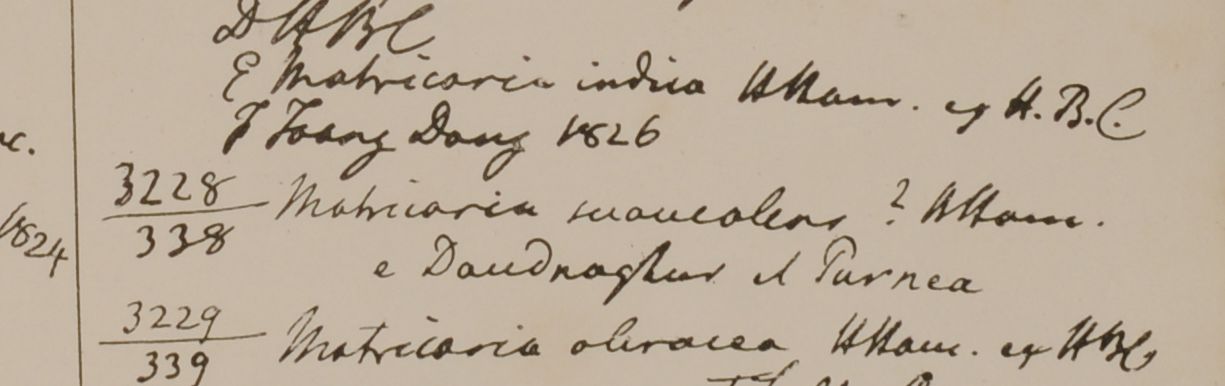 D HBC
E Matricaria indica HHam. ex H.B.C.
F Toang Dong 1826
3228
338
Matricaria suaveolens ? HHam.
1824
e Daudnaghur et Purnea
3229
339
Matricaria oleracea HHam. ex HBC